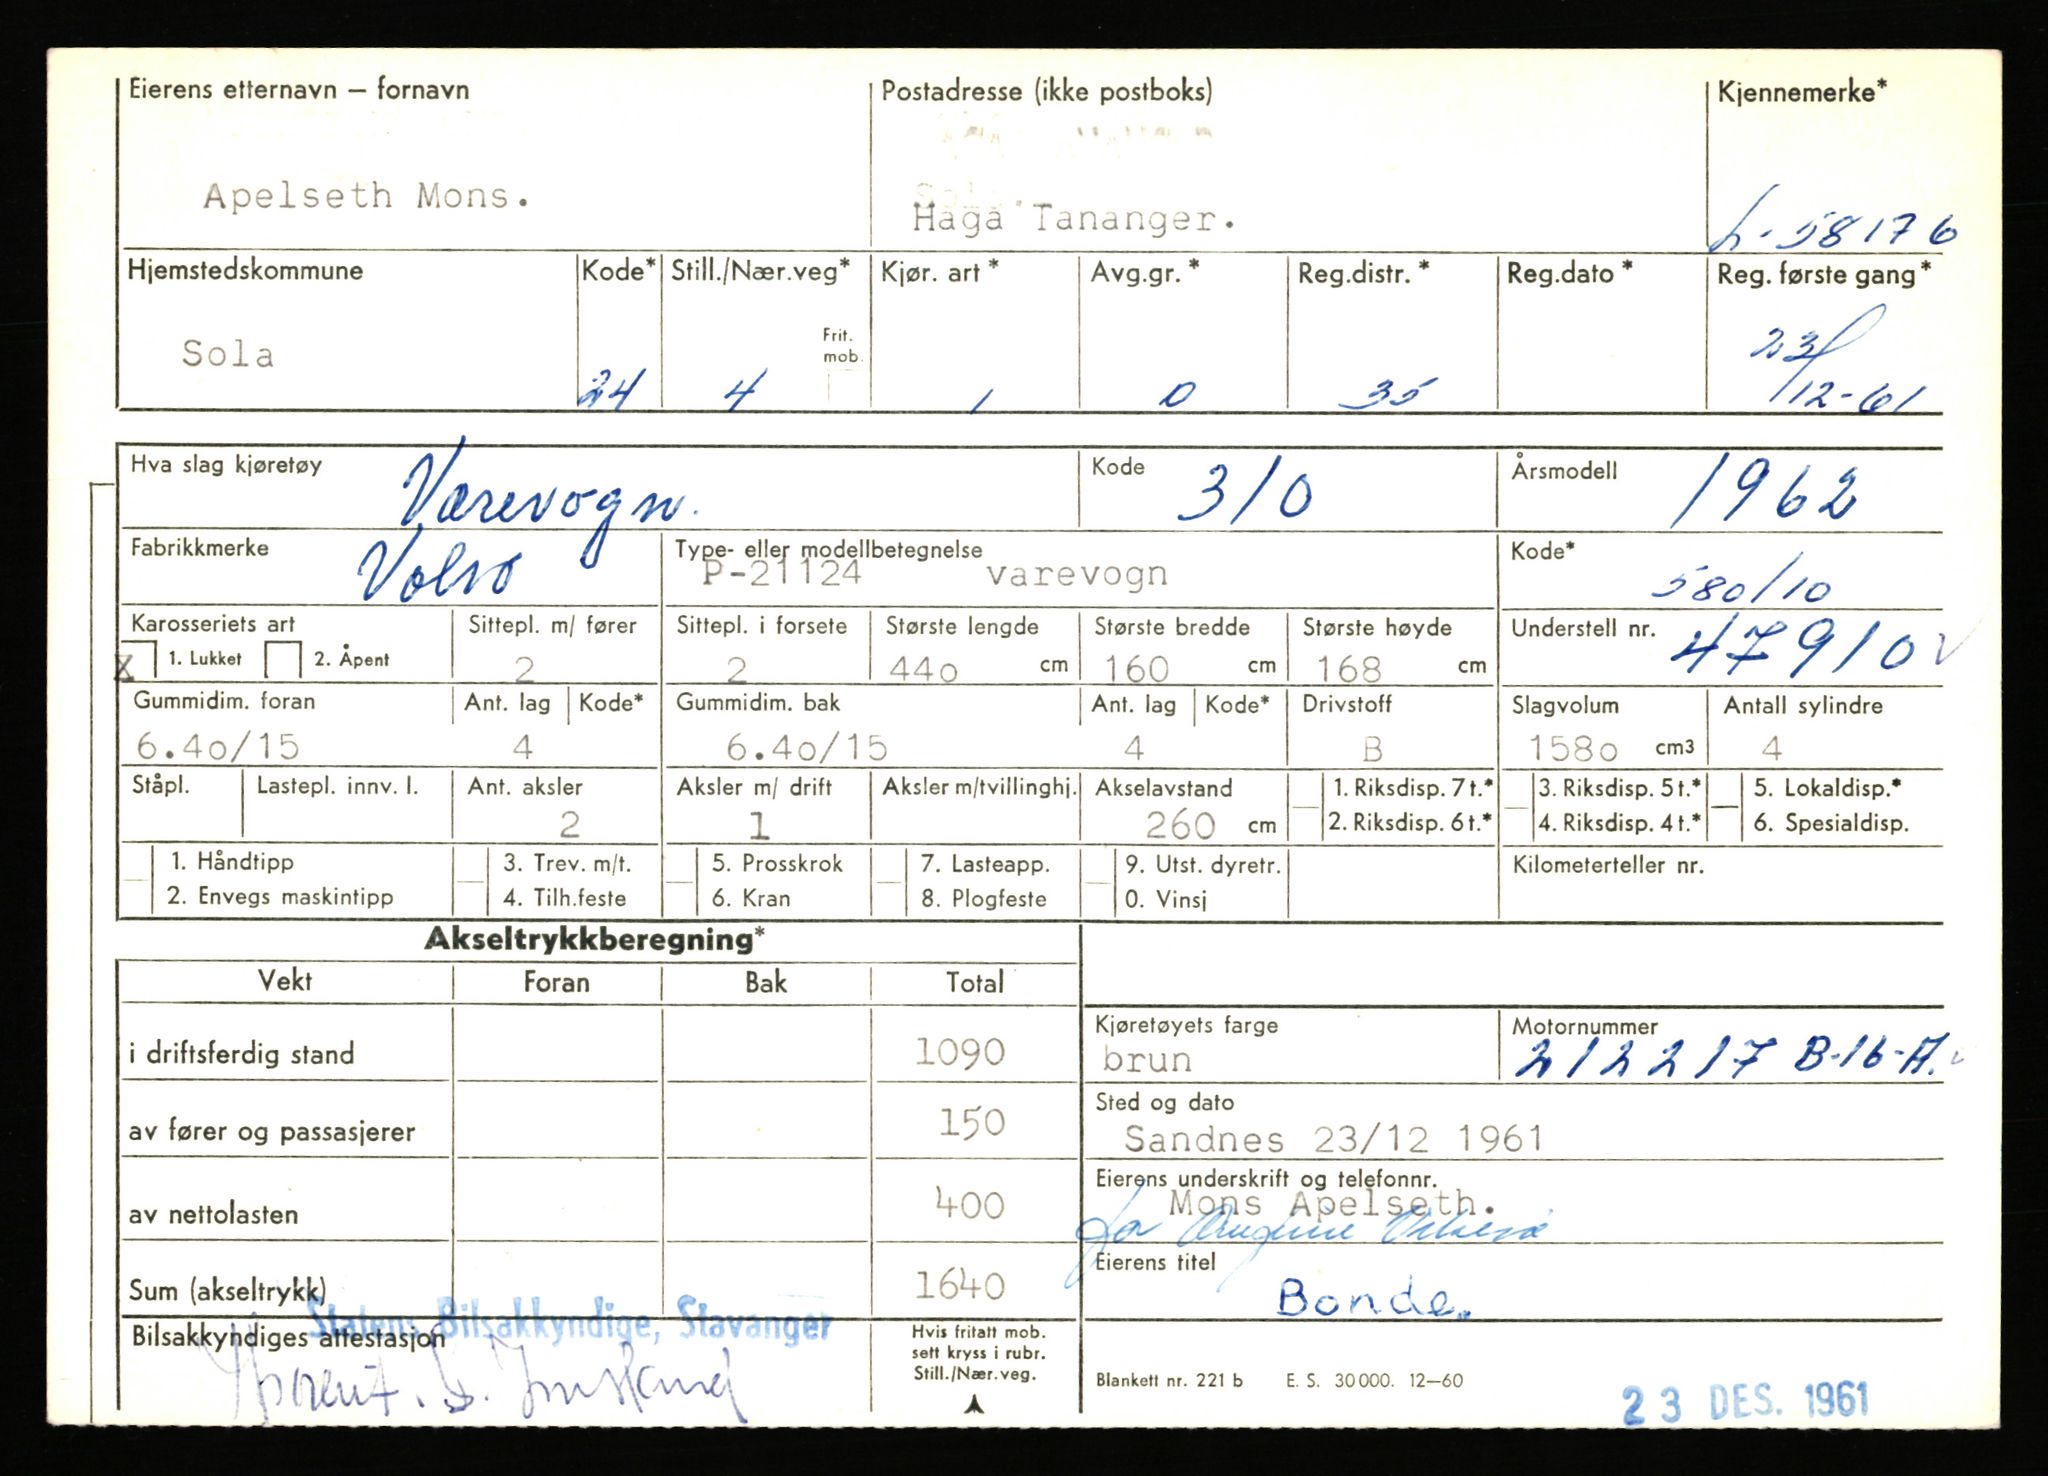 Eierens etternavn — fornavn Postadresse (ikke postboks) Kjennemerke*
Apelseth Mons. Haga Tananger. L-58176
Hjemstedskommune Kode* Still./Nær.veg* Kjør. art * Avg.gr. * Reg.distr. * Reg.dato * Reg. første gang*
Frit. mob.
Sola 24 4 1 0 35 23/12-61
Hva slag kjøretøy Varevogn. Kode 310 Årsmodell 1962
Fabrikkmerke Volvo Type- eller modellbetegnelse P-21124 varevogn Kode* 580/10
Karosseriets art Sittepl. m/ fører Sittepl. i forsete Største lengde Største bredde Største høyde Understell nr. 47910
X 1. Lukket 2. Åpent 2 2 44o cm 160 cm 168 cm
Gummidim. foran Ant. lag Kode* Gummidim. bak Ant. lag Kode* Drivstoff Slagvolum Antall sylindre
6.4o/15 4 6.4o/15 4 B 158o cm3 4
Ståpl. Lastepl. innv. l. Ant. aksler Aksler m/ drift Aksler m/tvillinghj. Akselavstand 1. Riksdisp. 7 t.* 3. Riksdisp. 5 t.* 5. Lokaldisp.*
2 1 260 cm 2. Riksdisp. 6 t.* 4. Riksdisp. 4 t.* 6. Spesialdisp.
1. Håndtipp 3. Trev. m/t. 5. Prosskrok 7. Lasteapp. 9. Utst. dyretr. Kilometerteller nr.
2. Envegs maskintipp 4. Tilh.feste 6. Kran 8. Plogfeste 0. Vinsj
Akseltrykkberegning*
Vekt Foran Bak Total
i driftsferdig stand 1090
av fører og passasjerer 150
av nettolasten 400
Sum (akseltrykk) 1640
Statens Bilsakkyndige, Stavanger
Bilsakkyndiges attestasjon
Hvis fritatt mob.
sett kryss i rubr.
Still./Nær.veg.
Kjøretøyets farge Motornummer
brun 212217 B-16-A.
Sted og dato
Sandnes 23/12 1961
Eierens underskrift og telefonnr.
Mons Apelseth.
for
Eierens titel
Bonde.
Blankett nr. 221 b E. S. 30 000. 12—60
23 DES. 1961